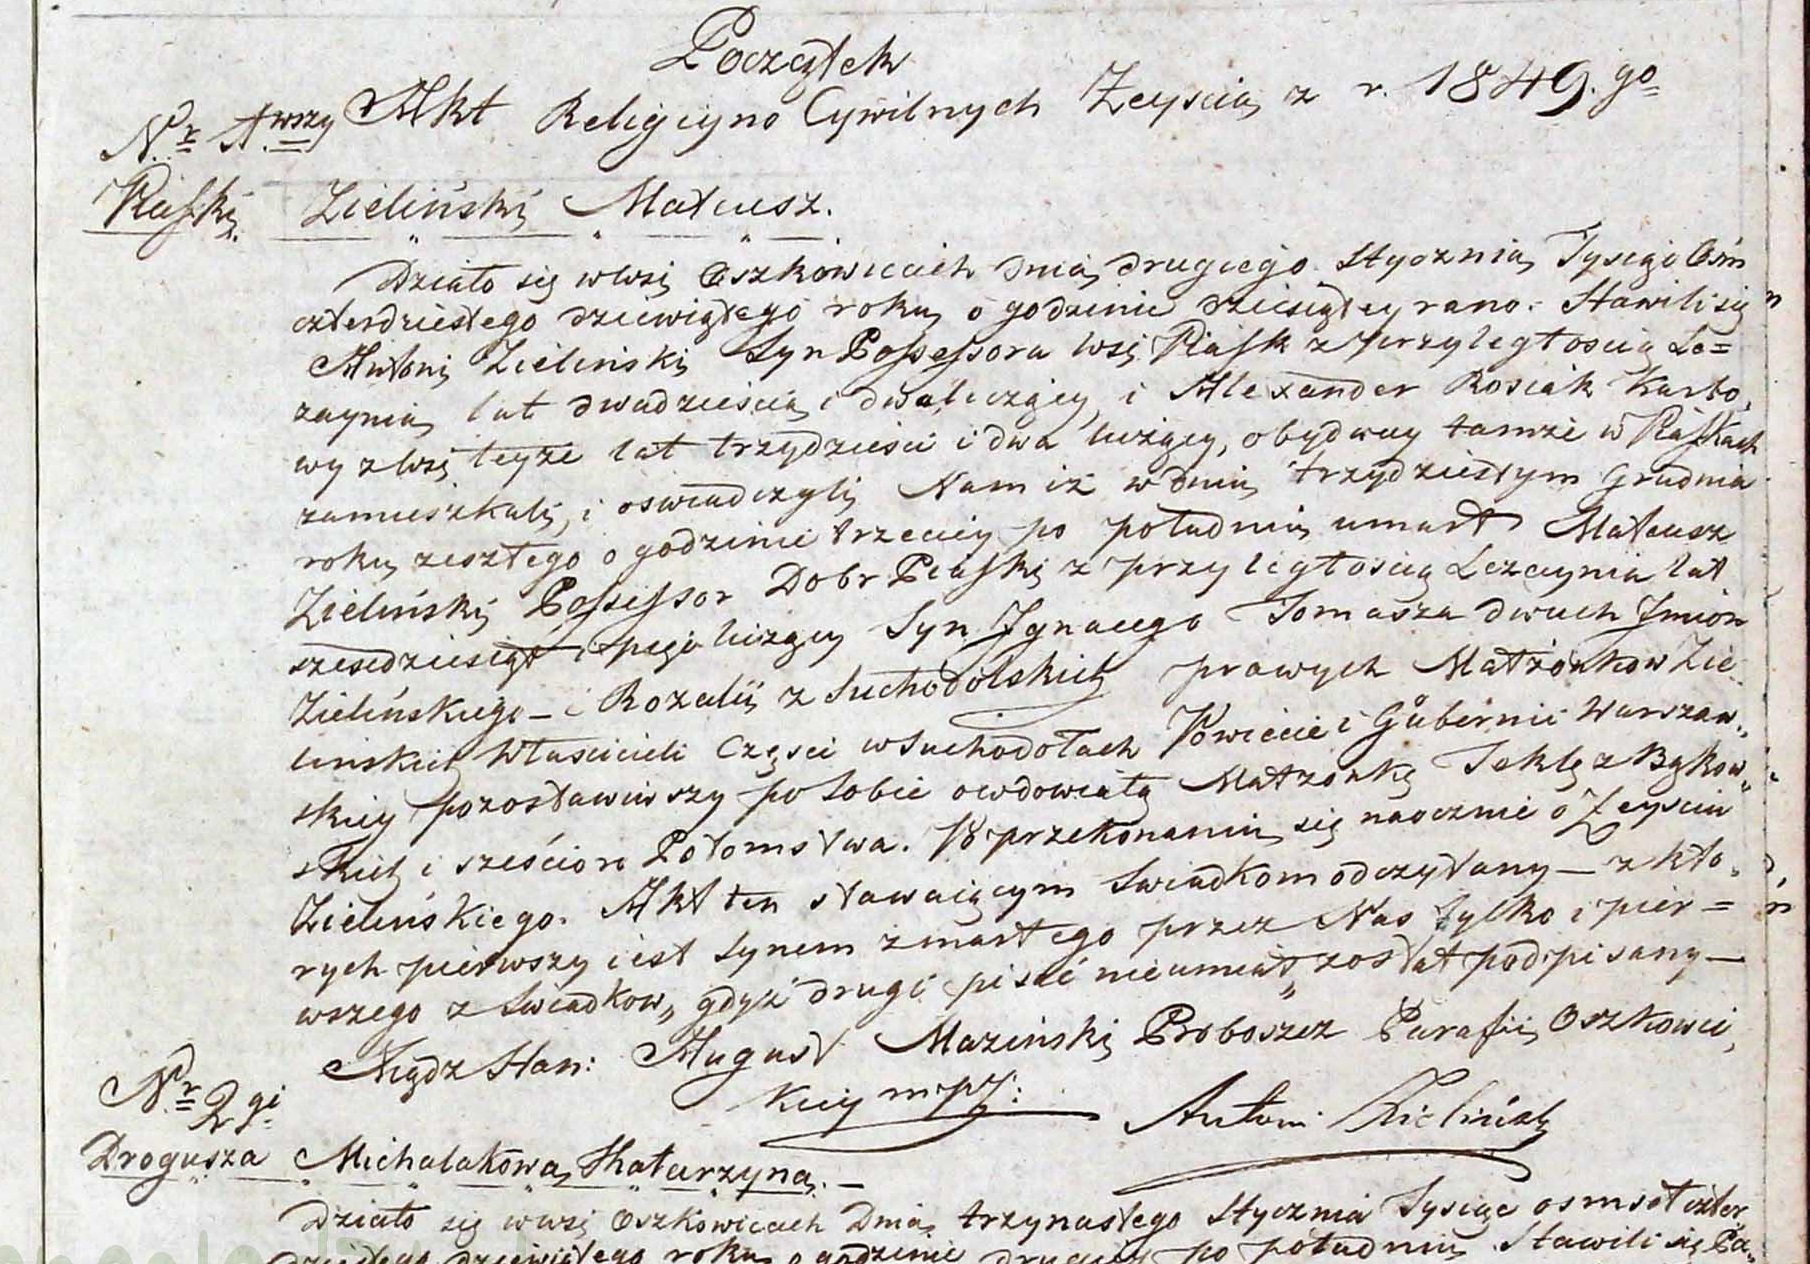 Początek
Akt Religiyno Cywilnych Zeyścia z r. 1849.go
Nr 1.wszy
Piaski. Zieliński Mateusz.
Działo się w wsi Oszkowicach dnia drugiego Stycznia Tysiąc Osm
czterdziestego dziewiątego roku o godzinie dziesiątey rano. Stawili się
Antoni Zieliński Syn Possessora wsi Piask z przyległoscią Le=
zaynia lat dwadzieścia i dwa liczący, i Alexander Rosiak Karbo,
wy z wsi teyże lat trzydzieści i dwa liczący, obydway tamże w Piaskach
zamieszkali, i oswiadczyli Nam iż w dniu trzydziestym Grudnia
roku zeszłego o godzinie trzeciey po południu umarł Mateusz
Zieliński Possessor Dobr Piaski z przyległoscią Lezaynia lat
szescdziesiąt i pięć liczący Syn Ignacego Tomasza dwuch Imion
Zielińskiego – i Rozalii z Suchodolskich prawych Małżonkow Zie
linskich Właścicieli Częsci w Suchodołach Powiecie i Gubernii Warszaw„
skiey pozostawiwszy po Sobie owdowiałą Małżonkę Teklę z Bykow„
skich i sześcioro Potomstwa. Po przekonaniu się naocznie o Zeyściu
Zielińskiego. Akt ten stawaiącym Swiadkom odczytany – z kto„
rych pierwszy iest Synem zmarłego przez Nas tylko i pier=
wszego z Swiadkow„ gdyż drugi pisać nieumiał, został podpisany –
Xiądz Stan: August Maziński Proboszcz Parafii Oszkowic,
kiey mpp:
Antoni Zieliński
Nr 2gi
Drogusza Michalakowa Katarzyna. –
Działo się w wsi Oszkowicach Dnia trzynastego Stycznia Tysiąc osmset czter
dziestego dziewiątego roku o godzinie drugiey po południu Stawili się Pa„